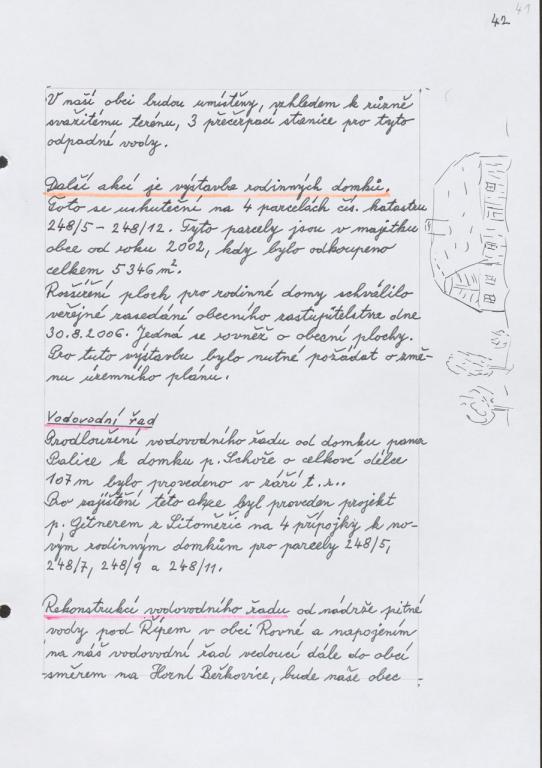 41
42
V naší obci budou umístěny, vzhledem k různě
svažitému terénu, 3 přečerpací stanice pro tyto
odpadní vody.
Další akcí je výstavba rodinných domků.
Toto se uskuteční na 4 parcelách čís. katastru
248/5 - 248/12. Tyto parcely jsou v majitku
obce od roku 2002, kdy bylo odkoupeno
celkem 5346 m².
Rozšíření ploch pro rodinné domy schválilo
veřejné zasedání obecního zastupitelstva dne
30.8.2006. Jedná se rovněž o obecní plochy.
Pro tuto výstavbu bylo nutné požádat o změ-
nu územního plánu.
Vodovodní řad
Prodloužení vodovodního řadu od domku pana
Palice k domku p. Schoře o celkové délce
107 m bylo provedeno v září t.r..
Pro zajištění této akce byl proveden projekt
p. Gitnerem z Litoměřic na 4 přípojky k no-
vým rodinným domkům pro parcely 248/5,
248/7, 248/9 a 248/11.
Rekonstrukcí vodovodního řadu od nádrže pitné
vody pod Řípem v obci Rovné a napojením
na náš vodovodní řad vedoucí dále do obcí
směrem na Horní Beřkovice, bude naše obec